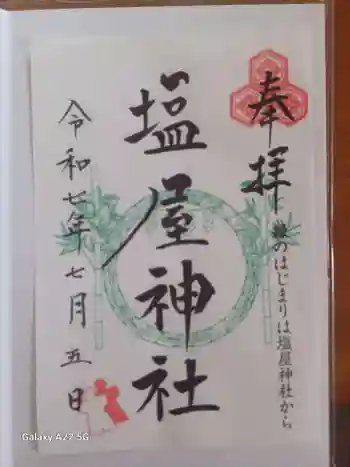 奉拝
旅のはじまりは塩屋神社から
塩屋神社
令和七年七月五日
Galaxy A22 5G